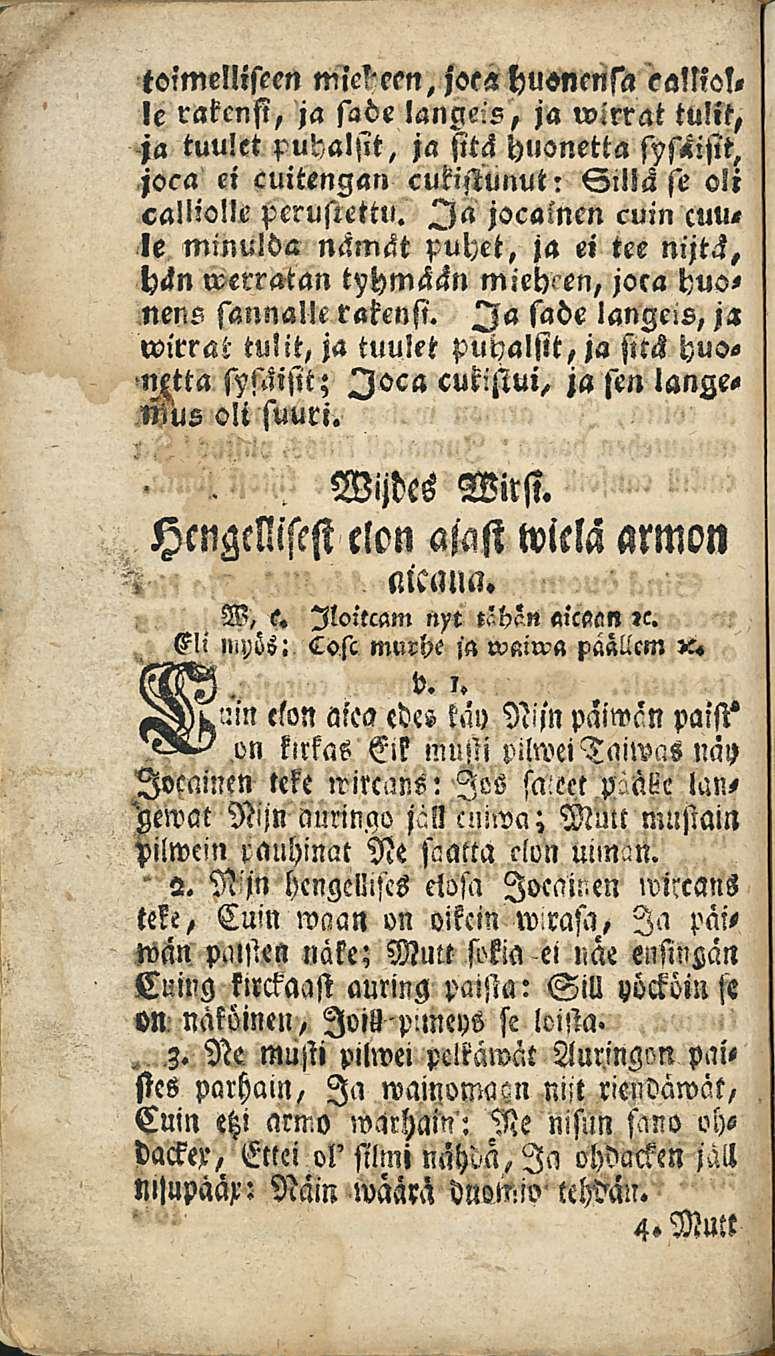 toimelliseen mieheen, joca huonensa calliol-
le rakensi, ja sade langeis, ja wirrat tulit,
ja tuulet puhalsit, ja sitä huonetta sysäisit,
joca ei cuitengan cukistunut: Sillä se oli
calliolle perustettu. Ja jocainen cuin cuu-
le minulda nämät puhet, ja ei tee nijtä,
hän werratan tyhmään mieheen, joca huo-
nens sannalle rakensi. Ja sade langeis, ja
wirrat tulit, ja tuulet puhalsit, ja sitä huo-
netta sysäisit; Joca cukistui, ja sen lange-
mus oli suuri.
Wijdes Wirsi.
Hengellisest elon ajast wielä armon
aicana.
W, c. Iloitcam nyt tähän aicaan ꝛc.
Eli myös: Cosc murhe ja waiwa päällem ꝛc.
v. 1.
Cuin elon aica edes käy Nijn päiwän paist'
on kirkas Eik musti pilwei Taiwas näy
Jocainen teke wircans: Jos sateet päälle lan-
gewat Nijn auringo jäll cuiwa; Mutt mustain
pilwein pauhinat Ne saatta elon uiman.
2. Nijn hengellises elosa Jocainen wircans
teke, Cuin waan on oikein wirasa, Ja päi-
wän paisten näke; Mutt sokia ei näe ensingän
Cuing kirckaast auring paista: Sill yöcköin se
on näköinen, Joill pimeys se loista.
3. Ne musti pilwei pelkäwät Auringon pai-
stes parhain, Ja wainomaan nijt riendäwät,
Cuin etzi armo warhain: Ne nisun sano oh-
dackex, Ettei ol' silmi nähdä, Ja ohdacken jäll
nisupääx: Näin wäärä duomio tehdän.
4. Mutt